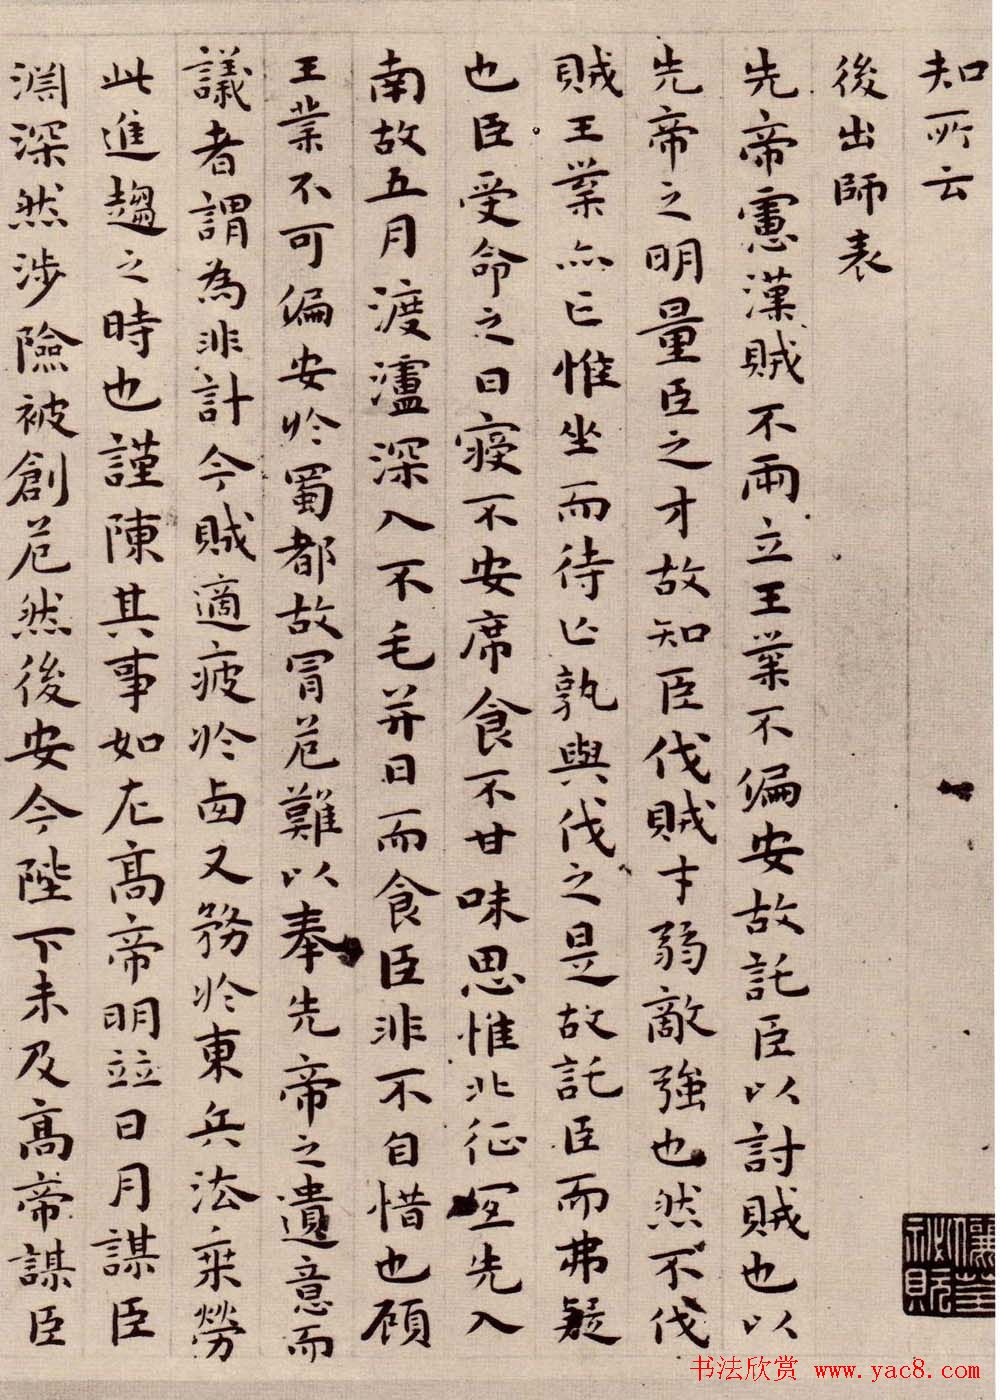 知所云
後出師表
先帝慮漢賊不兩立王業不偏安故託臣以討賊也以
先帝之明量臣之才故知臣伐賊才弱敵強也然不伐
賊王業亦亡惟坐而待亡孰與伐之是故託臣而弗疑
也臣受命之日寢不安席食不甘味思惟北征宜先入
南故五月渡瀘深入不毛并日而食臣非不自惜也顧
王業不可偏安於蜀都故冒危難以奉先帝之遺意而
議者謂為非計今賊適疲於西又務於東兵法乗勞
此進趨之時也謹陳其事如左高帝明並日月謀臣
淵深然涉險被創危然後安今陛下未及高帝謀臣
书法欣赏 www.yac8.com